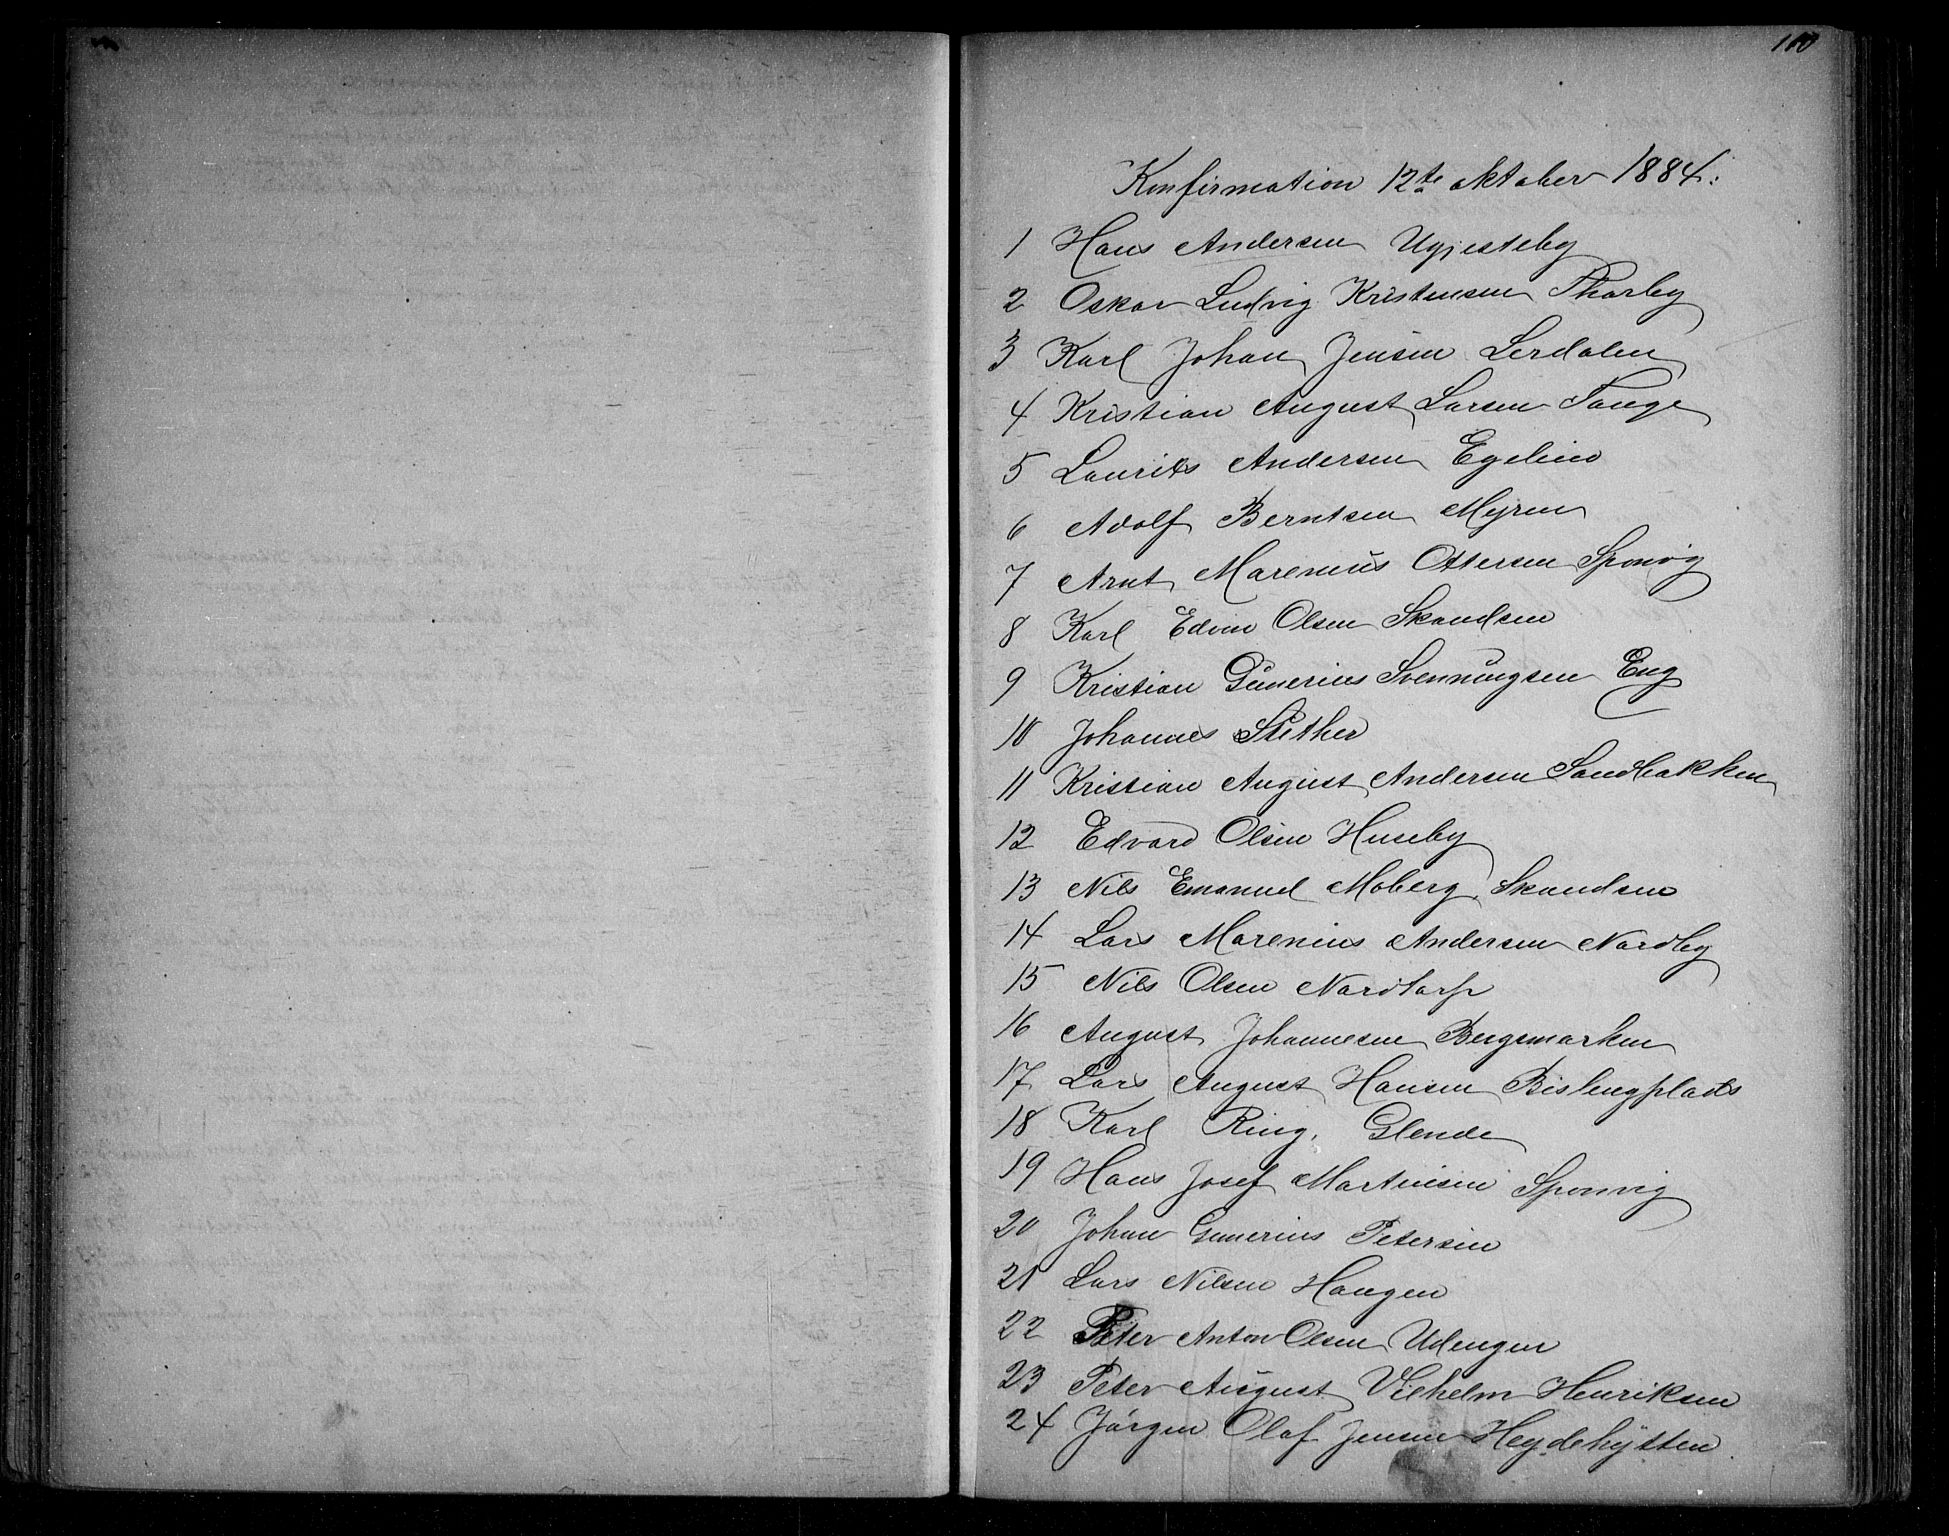 110
Konfirmation 12te oktober 1884.
1 Hans Andersen Ugjesteby
2 Oskar Ludvig Kristensen Thorby
3 Karl Johan Jensen Lerdalen
4 Kristian August Larsen Tange
5 Laurits Andersen Egelien
6 Adolf Berntsen Myren
7 Arnt Marenius Ottersen Sponvig
8 Karl Edvin Olsen Skandsen
9 Kristian Gunerius Svenningsen Eng
10 Johannes
11 Kristian August Andersen Sandbakken
12 Edvard Olsen Huseby
13 Nils Emanuel Moberg, Skandsen
14 Lars Marenius Andersen Nordby
15 Nils Olsen Nordtorp
16 August Johannesen Bergsmarken
17 Lars August Hansen Bislengplads
18 Karl Ring, Glende
19 Hans Josef Martinsen Sponvig
20 Johan Gunerius Petersen
21 Lars Nilsen Haugen
22 Peter Anton Olsen Udengen
23 Peter August Vilhelm Henriksen
24 Jörgen Olaf Jensen Heydehytten.